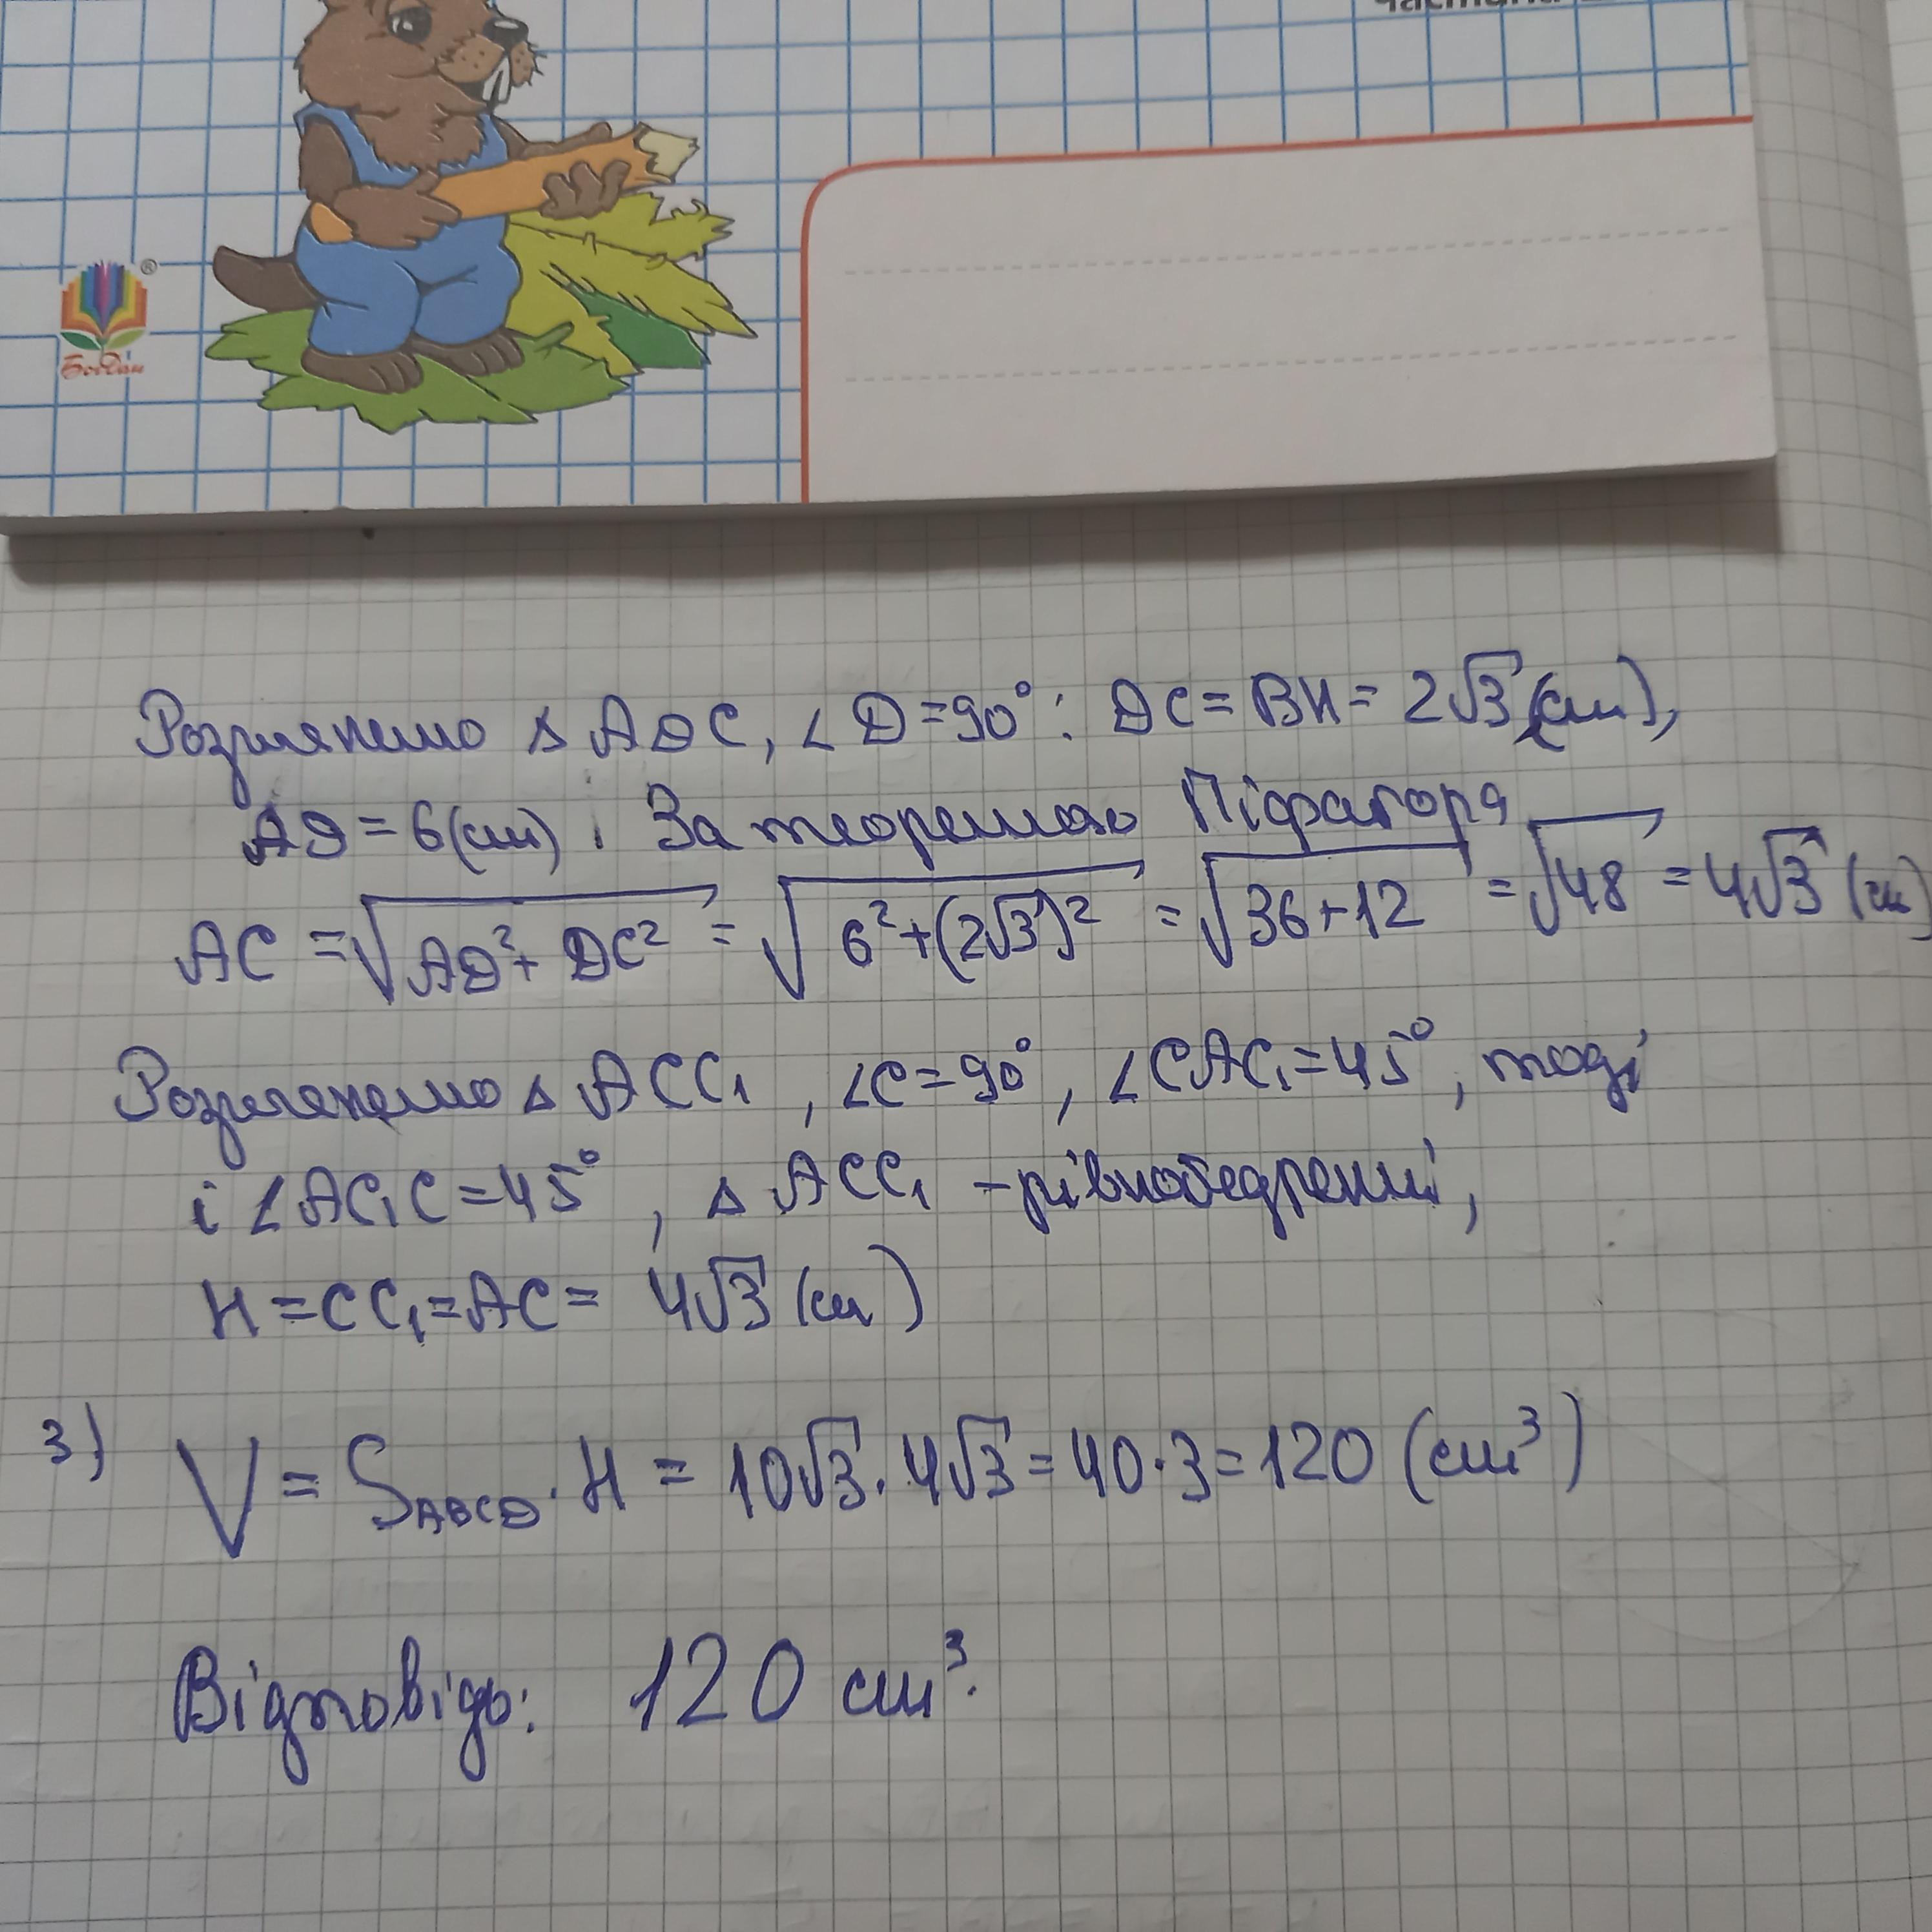 Богдан
®
Розглянемо △ ADC, ∠D=90°: DC = BH = 2√3 (см),
AD = 6(см). За теоремою Піфагора
AC = √(AD²+DC²) = √(6²+(2√3)²) = √(36+12) = √48 = 4√3 (см)
Розглянемо △ ACC₁, ∠C=90°, ∠CAC₁=45°, тоді
і ∠AC₁C=45°, △ ACC₁ - рівнобедрений,
H=CC₁=AC= 4√3 (см)
3) V = S_ABCD · H = 10√3 · 4√3 = 40·3 = 120 (см³)
Відповідь: 120 см³.